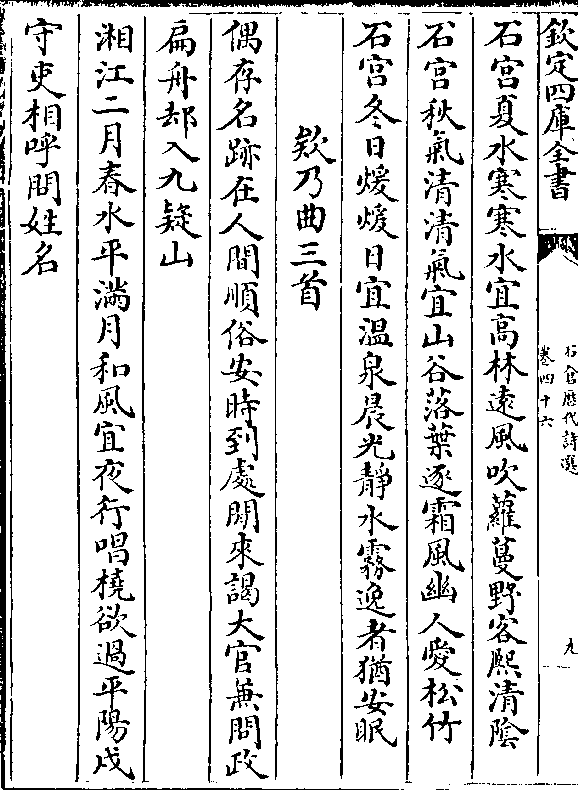 欽定四庫全書
石倉歷代詩選
卷四十六
九
石宮夏水寒寒水宜高林遠風吹蘿蔓野客熙清陰
石宮秋氣清清氣宜山谷落葉逐霜風幽人愛松竹
石宮冬日煖煖日宜溫泉晨光靜水霧逸者猶安眠
欸乃曲三首
偶存名跡在人間順俗安時到處閒來謁大官兼問政
扁舟却入九疑山
湘江二月春水平滿月和風宜夜行唱橈欲過平陽戍
守吏相呼問姓名